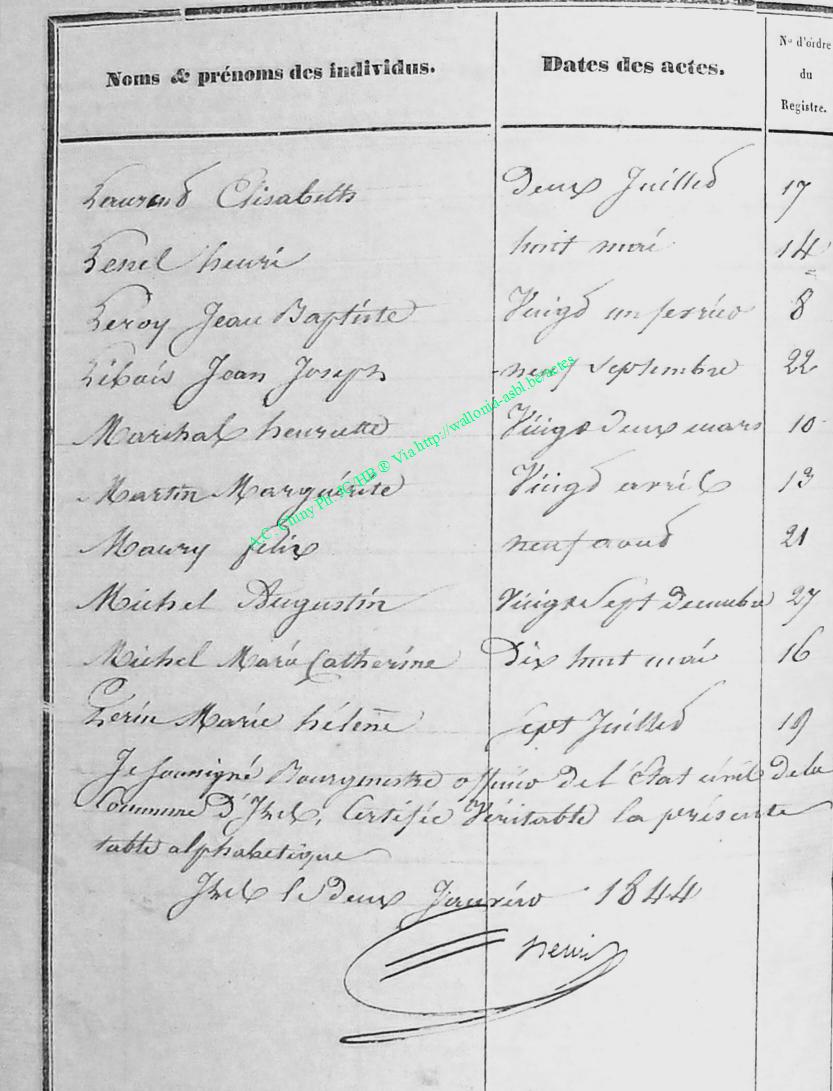 Noms & prénoms des individus. Dates des actes. No d'ordre du Registre.
Laurend Elisabeth deux Juilled 17
henri huit mai 14
Leroy Jean Baptiste Vingd un fevrier 8
Libois Jean Joseph neuf septembre 22
Marchal henriette Vingt deux mars 10
Martin Marguérite Vingd avril 13
Maury felix neuf aoud 21
Michel Augustin Vingt Sept decembre 27
Michel Marie Catherine Dix huit mai 16
Marie hélène Sept Juilled 19
Je Sousigné Bourgmestre officier de l'Etat civil de la
Commune d'Izel, Certifie Véritable la présente
table alphabetique
Izel le deux Janvier 1844
A.C. Chiny Ph JG HB ® Via http://wallonia-asbl.be/actes